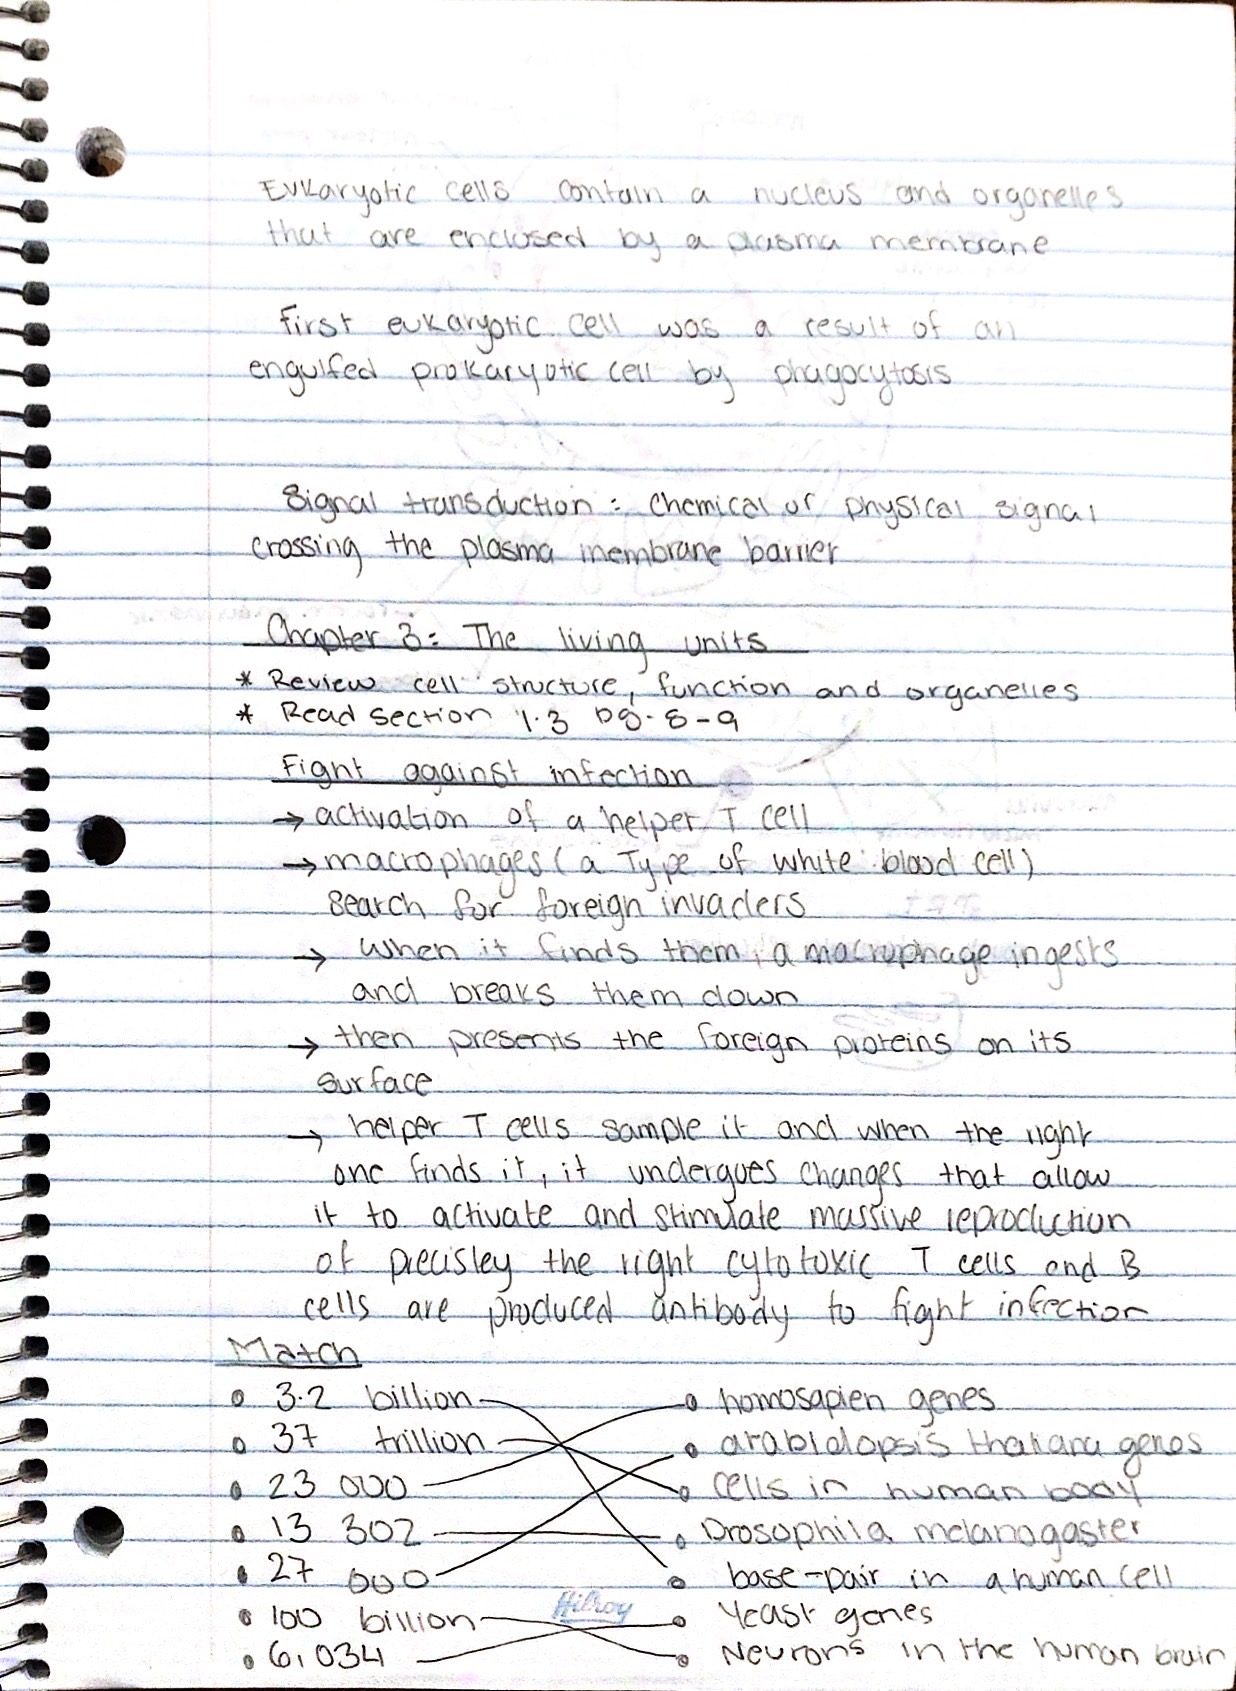 Eukaryotic cells contain a nucleus and organelles
that are enclosed by a plasma membrane
First eukaryotic cell was a result of an
engulfed prokaryotic cell by phagocytosis
Signal transduction : Chemical or physical signal
crossing the plasma membrane barrier
Chapter 3: The living units
* Review cell structure, function and organelles
* Read section 1.3 pg. 8-9
Fight against infection
→ activation of a helper T cell
→ macrophages (a Type of white blood cell)
search for foreign invaders
→ when it finds them, a macrophage ingests
and breaks them down
→ then presents the foreign proteins on its
surface
→ helper T cells sample it and when the right
one finds it, it undergoes changes that allow
it to activate and stimulate massive reproduction
of precisley the right cytotoxic T cells and B
cells are produced antibody to fight infection
Match
• 3.2 billion • homosapien genes
• 37 trillion • arabidopsis thaliana genes
• 23 000 • cells in human body
• 13 302 • Drosophila melanogaster
• 27 000 • base-pair in a human cell
• 100 billion Hilroy • Yeast genes
• 6,034 • Neurons in the human brain